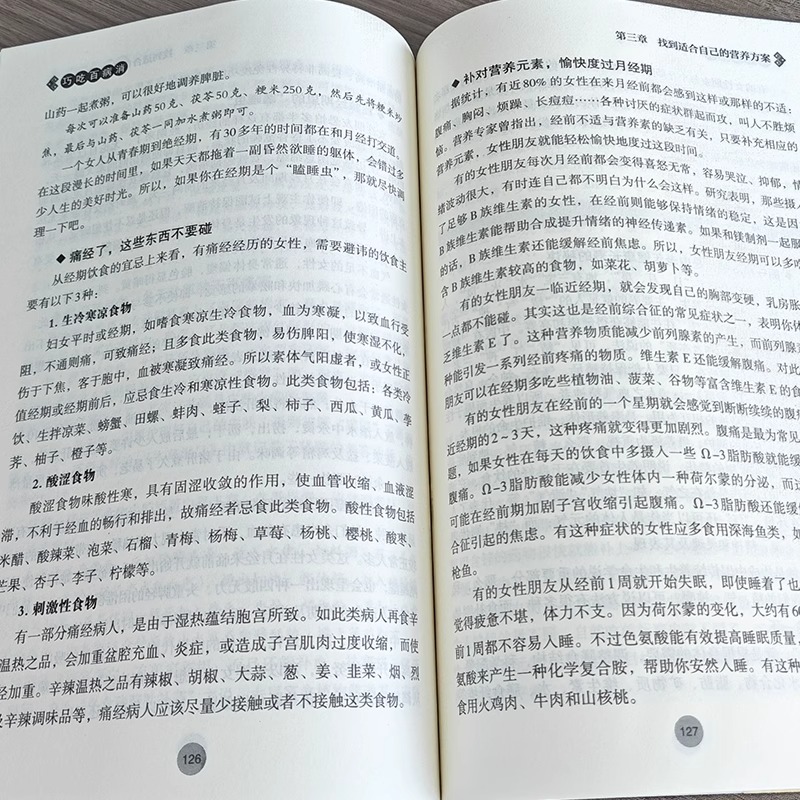 巧吃百病消
山药一起煮粥，可以很好地调养脾脏。
每次可以准备山药50克、茯苓50克、粳米250克，然后先将粳米炒
熬，最后与山药、茯苓一同加水煮粥即可。
一个女人从青春期到绝经期，有30多年的时间都在和月经打交道。
在这段漫长的时间里，如果天天都拖着一副昏然欲睡的躯体，会错过多
少人生的美好时光。所以，如果你在经期是个“瞌睡虫”，那就尽快调
理一下吧。
◆痛经了，这些东西不要碰
从经期饮食的宜忌上来看，有痛经经历的女性，需要避讳的饮食主
要有以下3种：
1. 生冷寒凉食物
妇女平时或经期，如嗜食寒凉生冷食物，血为寒凝，以致血行受
阻，不通则痛，可致痛经；且多食此类食物，易伤脾阳，使寒湿不化，
伤于下焦，客于胞中，血被寒凝致痛经。所以素体气阳虚者，或女性正
值经期或经期前后，应忌食生冷和寒凉性食物。此类食物包括：各类冷
饮、生拌凉菜、螃蟹、田螺、蚌肉、蛏子、梨、柿子、西瓜、黄瓜、荸
荠、柚子、橙子等。
2. 酸涩食物
酸涩食物味酸性寒，具有固涩收敛的作用，使血管收缩、血液涩
滞，不利于经血的畅行和排出，故痛经者忌食此类食物。酸性食物包括
米醋、酸辣菜、泡菜、石榴、青梅、杨梅、草莓、杨桃、樱桃、酸枣、
芒果、杏子、李子、柠檬等。
3. 刺激性食物
有一部分痛经病人，是由于湿热蕴结胞宫所致。如此类病人再食辛
温热之品，会加重盆腔充血、炎症，或造成子宫肌肉过度收缩，而使
经加重。辛辣温热之品有辣椒、胡椒、大蒜、葱、姜、韭菜、烟、烈
辛辣调味品等，痛经病人应该尽量少接触或者不接触这类食物。
126
第三章 找到适合自己的营养方案
◆补对营养元素，愉快度过月经期
据统计，有近80%的女性在来月经前都会感到这样或那样的不适：
腹痛、胸闷、烦躁、长痘痘……各种讨厌的症状群起而攻，叫人不胜烦
恼。营养专家曾指出，经前不适与营养素的缺乏有关，只要补充相应的
营养元素，女性朋友就能轻松愉快地度过这段时间。
有的女性朋友每次月经前都会变得喜怒无常，容易哭泣、抑郁，情
绪波动很大，有时连自己都不明白为什么会这样。研究表明，那些摄入
了足够B族维生素的女性，在经前则能够保持情绪的稳定，这是因
B族维生素能帮助合成提升情绪的神经传递素。如果和镁制剂一起服
的话，B族维生素还能缓解经前焦虑。所以，女性朋友经期可以多吃
含B族维生素较高的食物，如菜花、胡萝卜等。
有的女性朋友一临近经期，就会发现自己的胸部变硬，乳房胀
一点都不能碰。其实这也是经前综合征的常见症状之一，表明你体
乏维生素E了。这种营养物质能减少前列腺素的产生，而前列腺素
种能引发一系列经前疼痛的物质。维生素E还能缓解腹痛。对此
朋友可以在经期多吃些植物油、菠菜、谷物等富含维生素E的食
有的女性朋友在经前的一个星期就会感觉到断断续续的腹痛
近经期的2－3天，这种疼痛就变得更加剧烈。腹痛是最为常见
题，如果女性在每天的饮食中多摄人一些Ω-3脂肪酸就能缓
腹痛。Ω-3脂肪酸能减少女性体内一种荷尔蒙的分泌，而这
可能在经前期加剧子宫收缩引起腹痛。Ω-3脂肪酸还能缓
合征引起的焦虑。有这种症状的女性应多食用深海鱼类，如
枪鱼。
有的女性朋友从经前1周就开始失眠，即使睡着了也
觉得疲惫不堪，体力不支。因为荷尔蒙的变化，大约有60
前1周都不容易人睡。不过色氨酸能有效提高睡眠质量，
氨酸来产生一种化学复合胺，帮助你安然人睡。有这种
食用火鸡肉、牛肉和山核桃。
127